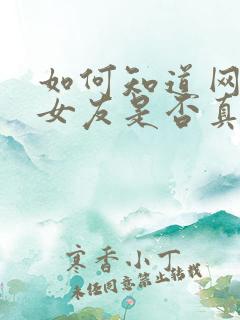 如何知道网
女友是否真
寒香小丁
未经同意禁止转载